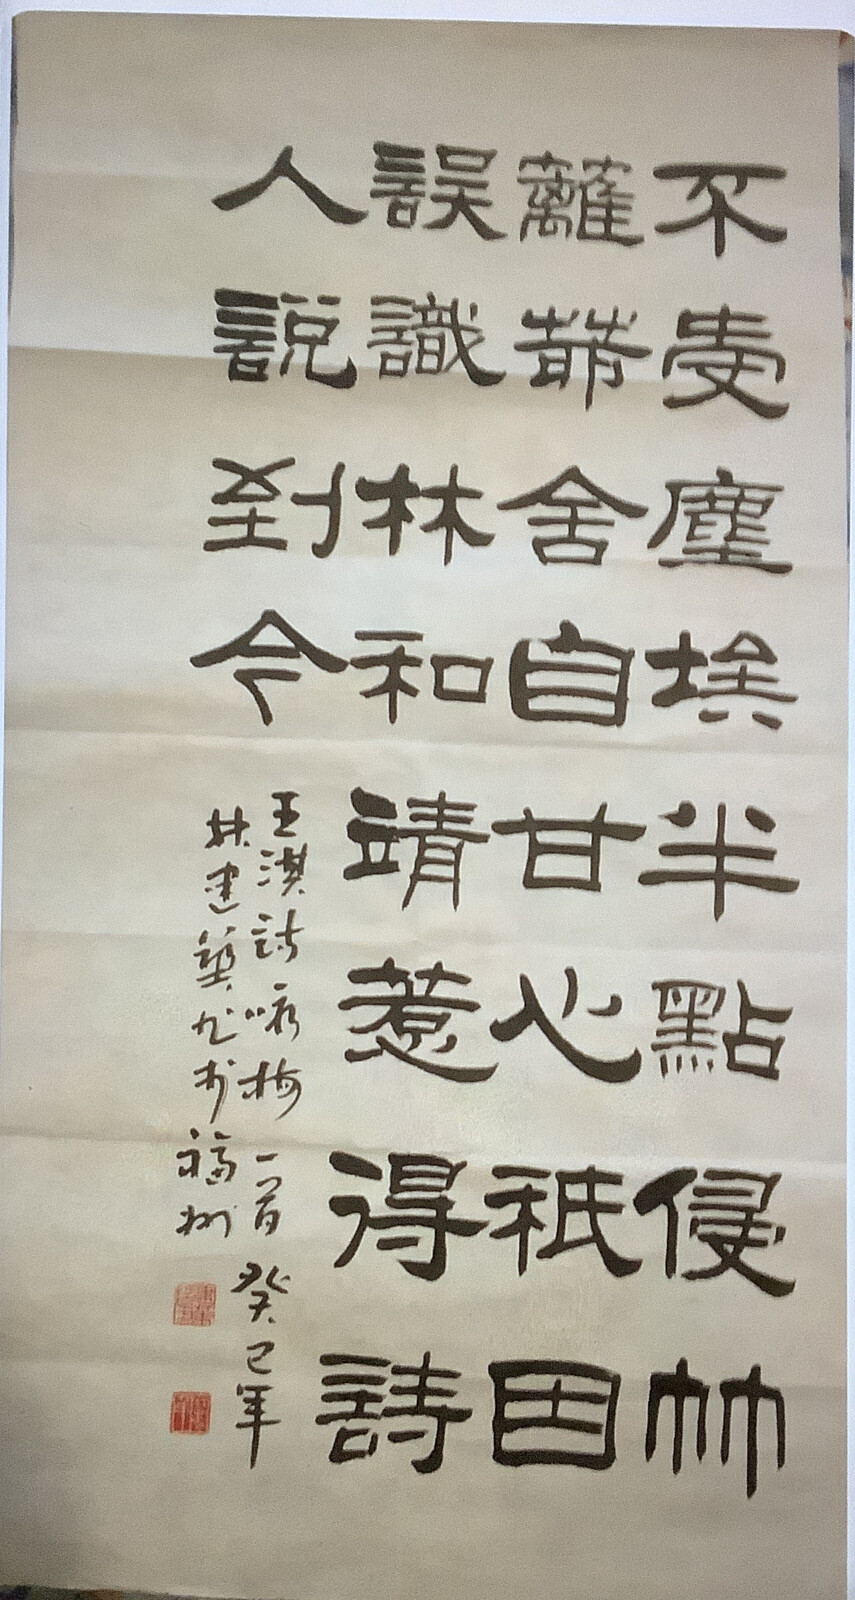 不受塵埃半點侵竹
籬茅舍自甘心祇因
誤識林和靖惹得詩
人說到今
王淇詩咏梅一首癸巳年
林建築书於福州